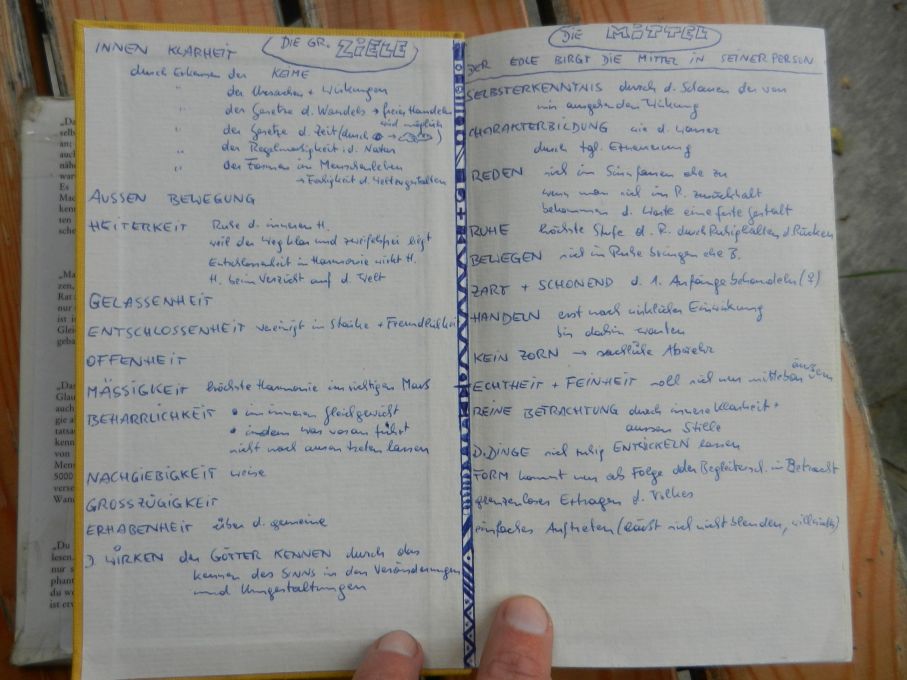 „Da
selb
an;
auch
nähe
war
Es
Mac
kenn
spre
sche
„Ma
zen,
Rat
nur s
ist i
Glei
geba
„Das
Glau
auch
gie al
tatsa
kenn
von
Mens
5000
verse
Wand
„Du
lesen.
nur s
phant
du wo
ist erv
DIE GR. ZIELE
INNEN KLARHEIT
durch Erkennen der KEIME
" der Ursachen + Wirkungen
" der Gesetze d. Wandels → freies Handeln
wird möglich
" der Gesetze d. Zeit (durch
" der Regelmässigkeit i. d. Natur
" der Formen im Menschenleben
→ Fähigkeit d. Weltzugestalten
AUSSEN BEWEGUNG
HEITERKEIT Ruhe d. inneren H.
weil der Weg klar und zweifelsfrei liegt
Entschlossenheit in Harmonie wirkt H.
H. beim Verzicht auf d. Welt
GELASSENHEIT
ENTSCHLOSSENHEIT vereinigt in Stärke + Freundlichkeit
OFFENHEIT
MÄSSIGKEIT höchste Harmonie im richtigen Mass
BEHARRLICHKEIT • im inneren Gleichgewicht
• indem was voran führt
nicht nach aussen treten lassen
NACHGIEBIGKEIT weise
GROSSZÜGIGKEIT
ERHABENHEIT über d. gemeine
WIRKEN der GÖTTER KENNEN durch das
kennen des SINNS in den Veränderungen
und Umgestaltungen
DIE MITTEL
DER EDLE BIRGT DIE MITTEL IN SEINER PERSON
SELBSTERKENNTNIS durch d. Schauen der von
mir ausgehenden Wirkung
CHARAKTERBILDUNG wie d. Wasser
durch tgl. Erneuerung
REDEN sich im Sinn fassen ehe zu
wenn man sich im R. zurückhält
bekommen d. Worte eine feste Gestalt
RUHE höchste Stufe d. R. durch Ruhighalten d. Rückens
BEWEGEN sich in Ruhe bringen ehe B.
ZART + SCHONEND d. 1. Anfänge behandeln (?)
HANDELN erst nach wirklicher Einwirkung
bis dahin warten
KEIN ZORN → sachliche Abwehr
ECHTHEIT + FEINHEIT soll sich nur mittelbar äussern
REINE BETRACHTUNG durch innere Klarheit +
aussen Stille
D. DINGE sich ruhig ENTWICKELN lassen
FORM kommt nur als Folge oder Begleitersch. in Betracht
grenzenloses Ertragen d. Volkes
einfaches Auftreten (lässt sich nicht blenden,